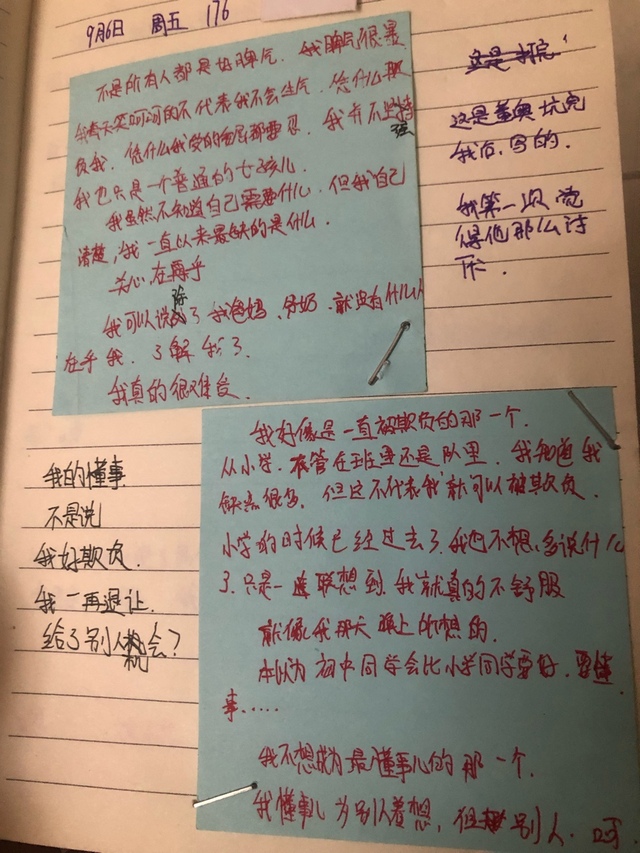 9月6日 周五 176
不是所有人都是好脾气，我脾气很暴
我每天笑呵呵的不代表我不会生气，凭什么欺
负我，凭什么我受的委屈都要忍，我并不坚强
我也只是一个普通的女孩儿
我虽然不知道自己需要什么，但我自己
清楚，我一直以来最缺的是什么
关心，在乎
我可以说除了我爸妈，奶奶，就没有什么人
在乎我，了解我了
我真的很难受
这是
这是董奥坑完
我后，写的.
我第一次觉
得他那么讨
厌.
我的懂事
不是说
我好欺负
我一再退让
给了别人机会?
我好像是一直被欺负的那一个.
从小学.不管在班里还是队里，我知道我
缺点很多，但这不代表我就可以被欺负.
小学的时候已经过去了，我也不想多说什么
了.只是一联想到.我就真的不舒服
就像我那天晚上所想的.
本以为初中同学会比小学同学要好，要懂
事......
我不想成为最懂事儿的那一个.
我懂事儿为别人着想，但别人.呵